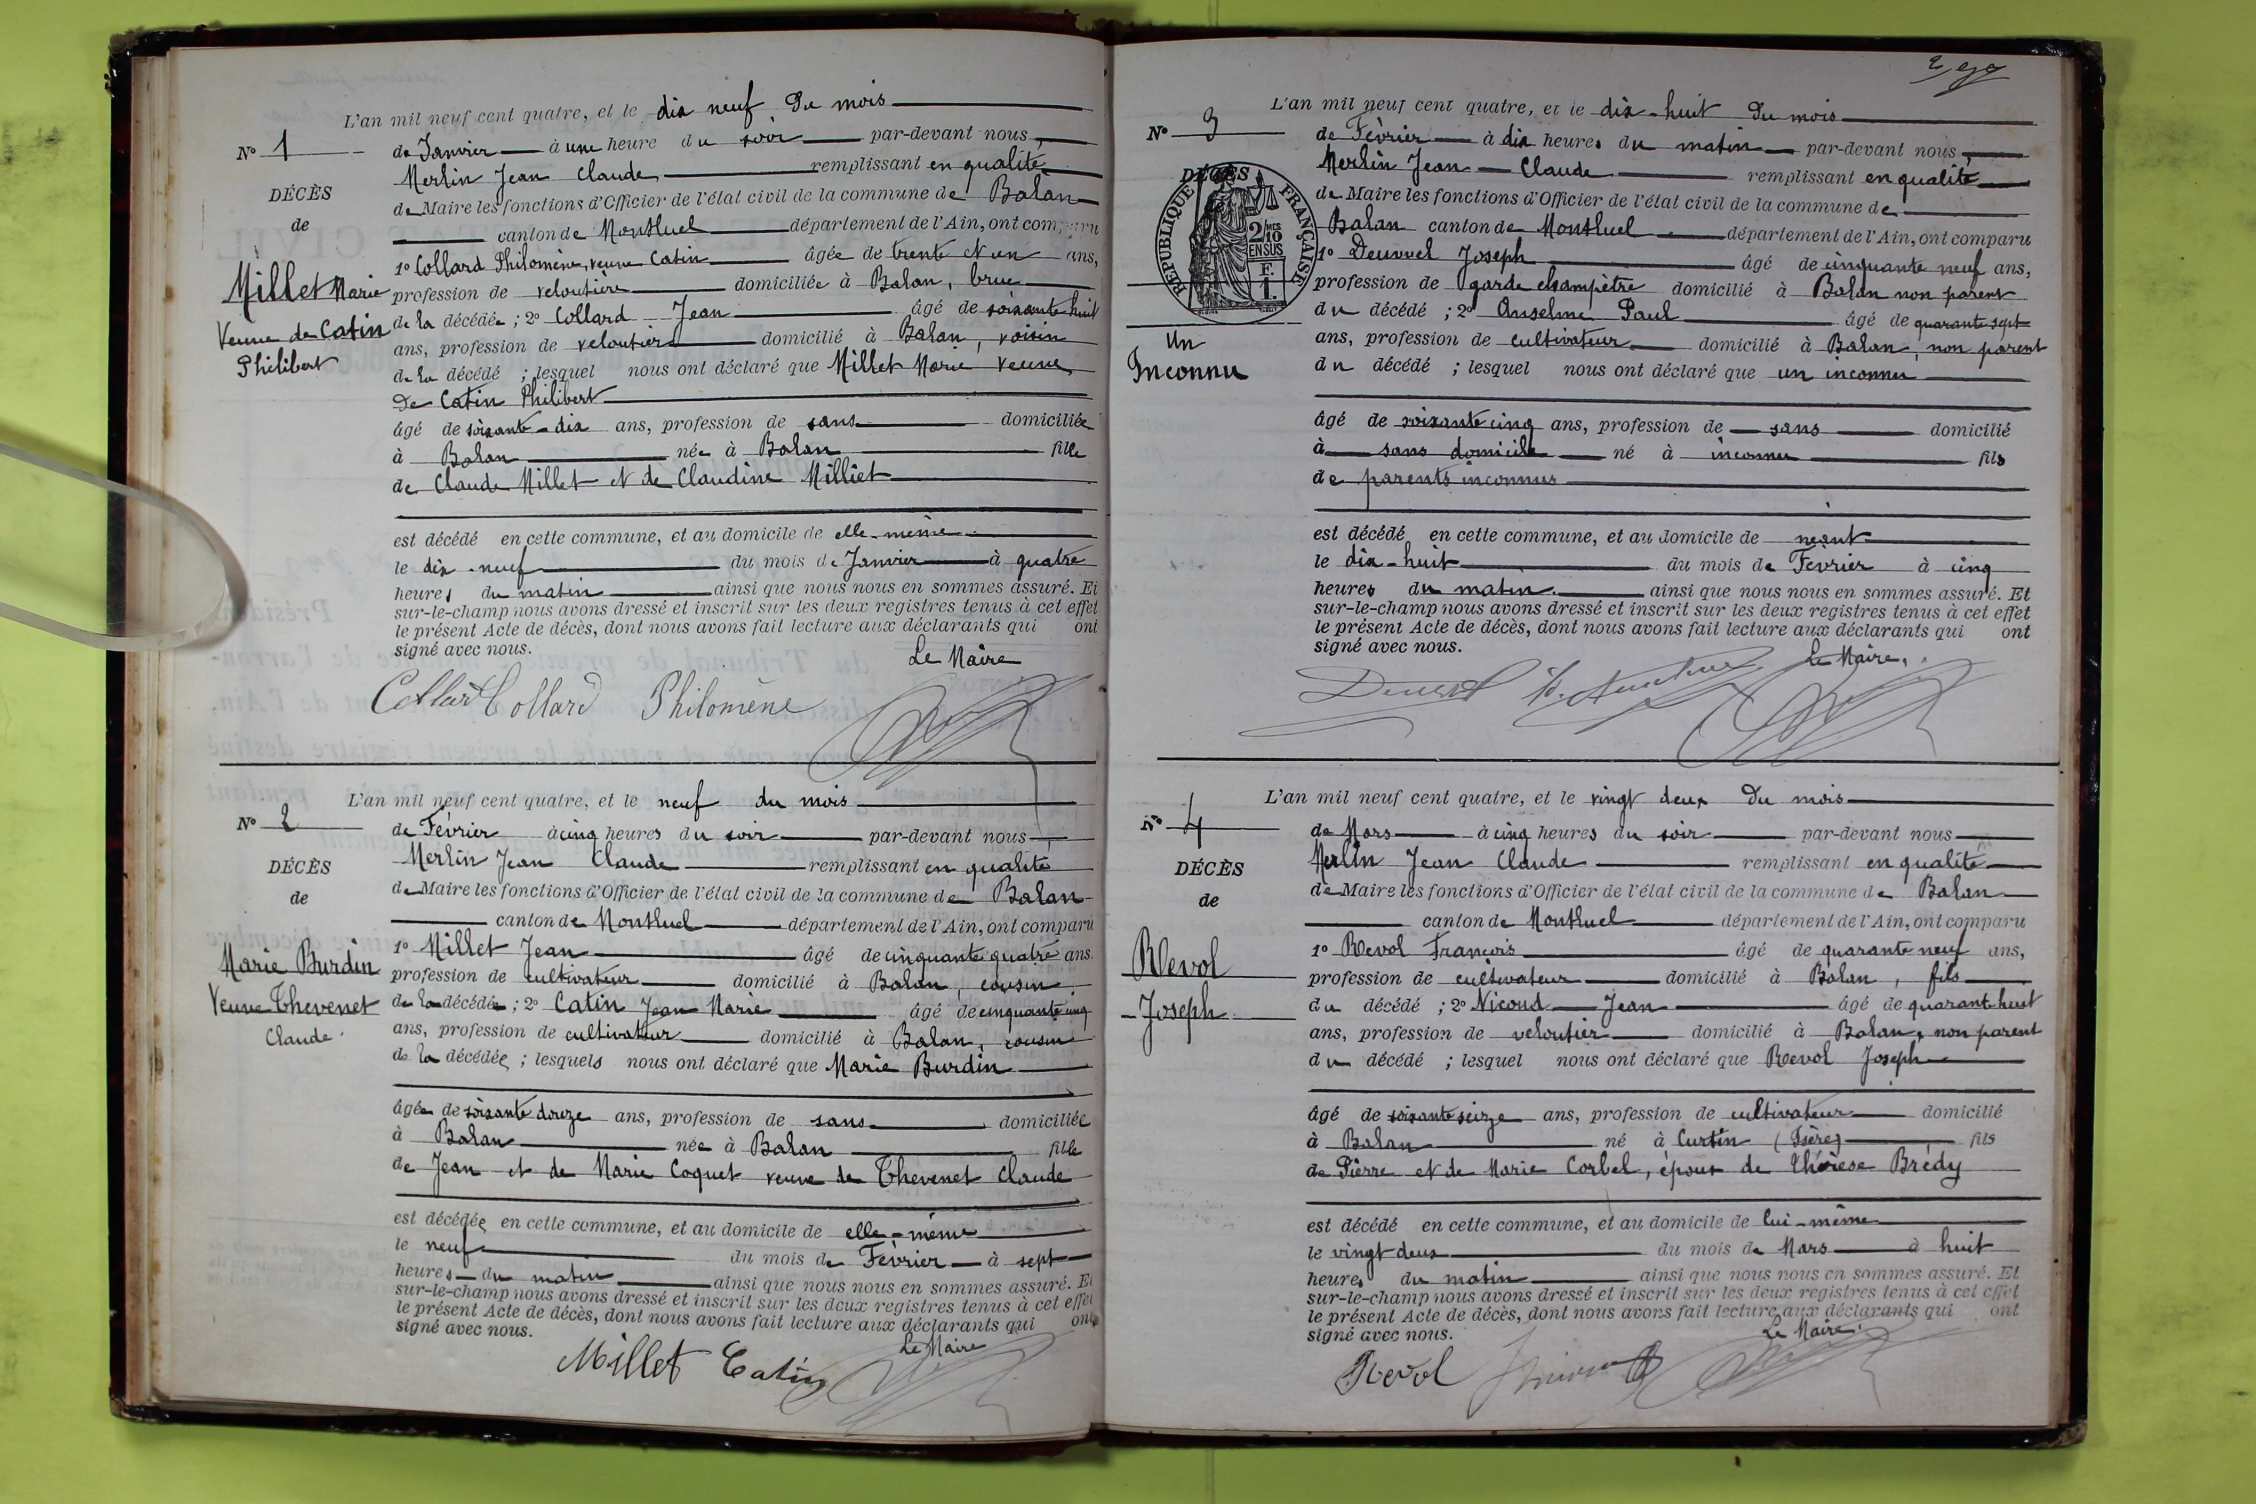 L'an mil neuf cent quatre, et le dix neuf du mois
N° 1 de Janvier à une heure du soir par-devant nous,
Merlin Jean Claude remplissant en qualité
DÉCÈS
de Maire les fonctions d'Officier de l'état civil de la commune de Balan
de
canton de Montluel département de l'Ain, ont comparu
1° Collard Philomène, veuve Catin âgée de trente et un ans,
Millet Marie
profession de veloutière domiciliée à Balan, brue
Veuve de Catin
de la décédée ; 2° Collard Jean âgé de soixante huit
Philibert
ans, profession de veloutier domicilié à Balan, voisin
de la décédé ; lesquel nous ont déclaré que Millet Marie veuve
de Catin Philibert
âgé de soixante-dix ans, profession de sans domiciliée
à Balan née à Balan fille
de Claude Millet et de Claudine Milliet
est décédé en cette commune, et au domicile de elle-même
le dix-neuf du mois de Janvier à quatre
heures du matin ainsi que nous nous en sommes assuré. Et
sur-le-champ nous avons dressé et inscrit sur les deux registres tenus à cet effet
le présent Acte de décès, dont nous avons fait lecture aux déclarants qui ont
signé avec nous.
Le Maire
Collard Collard Philomène
L'an mil neuf cent quatre, et le neuf du mois
N° 2 de Février à cinq heures du soir par-devant nous,
Merlin Jean Claude remplissant en qualité
DÉCÈS
de Maire les fonctions d'Officier de l'état civil de la commune de Balan
de
canton de Montluel département de l'Ain, ont comparu
1° Millet Jean âgé de cinquante quatre ans.
Marie Burdin
profession de cultivateur domicilié à Balan, cousin
Veuve Thevenet
de la décédée ; 2° Catin Jean Marie âgé de cinquante cinq
Claude
ans, profession de cultivateur domicilié à Balan, cousin
de la décédée ; lesquels nous ont déclaré que Marie Burdin
âgée de soixante douze ans, profession de sans domiciliée
à Balan née à Balan fille
de Jean et de Marie Coquet veuve de Thevenet Claude
est décédée en cette commune, et au domicile de elle-même
le neuf du mois de Février à sept
heures du matin ainsi que nous nous en sommes assuré. Et
sur-le-champ nous avons dressé et inscrit sur les deux registres tenus à cet effet
le présent Acte de décès, dont nous avons fait lecture aux déclarants qui ont
signé avec nous.
Le Maire
Millet Catin
2
L'an mil neuf cent quatre, et le dix-huit du mois
N° 3 de Février à dix heures du matin par-devant nous,
Merlin Jean Claude remplissant en qualité
DÉCÈS
RÉPUBLIQUE FRANÇAISE
2/10 EN SUS
F. 1.
de Maire les fonctions d'Officier de l'état civil de la commune de
Balan canton de Montluel département de l'Ain, ont comparu
1° Joseph âgé de cinquante neuf ans,
profession de garde champêtre domicilié à Balan non parent
du décédé ; 2° Anselme Paul âgé de quarante sept
Un
ans, profession de cultivateur domicilié à Balan, non parent
Inconnu
du décédé ; lesquel nous ont déclaré que un inconnu
âgé de soixante cinq ans, profession de sans domicilié
à sans domicile né à inconnu fils
de parents inconnus
est décédé en cette commune, et au domicile de neant
le dix-huit du mois de Février à cinq
heures du matin ainsi que nous nous en sommes assuré. Et
sur-le-champ nous avons dressé et inscrit sur les deux registres tenus à cet effet
le présent Acte de décès, dont nous avons fait lecture aux déclarants qui ont
signé avec nous.
Le Maire,
L'an mil neuf cent quatre, et le vingt deux du mois
N° 4 de Mars à cinq heures du soir par-devant nous
Merlin Jean Claude remplissant en qualité
DÉCÈS
de Maire les fonctions d'Officier de l'état civil de la commune de Balan
de
canton de Montluel département de l'Ain, ont comparu
1° Revol François âgé de quarante neuf ans,
Revol
profession de cultivateur domicilié à Balan, fils
Joseph
du décédé ; 2° Nicoud Jean âgé de quarant huit
ans, profession de veloutier domicilié à Balan, non parent
du décédé ; lesquel nous ont déclaré que Revol Joseph
âgé de soixante seize ans, profession de cultivateur domicilié
à Balan né à Curtin (Isère) fils
de Pierre et de Marie Corbel, époux de Thérèse Brédy
est décédé en cette commune, et au domicile de lui-même
le vingt deux du mois de Mars à huit
heures du matin ainsi que nous nous en sommes assuré. Et
sur-le-champ nous avons dressé et inscrit sur les deux registres tenus à cet effet
le présent Acte de décès, dont nous avons fait lecture aux déclarants qui ont
signé avec nous.
Le Maire.
Revol